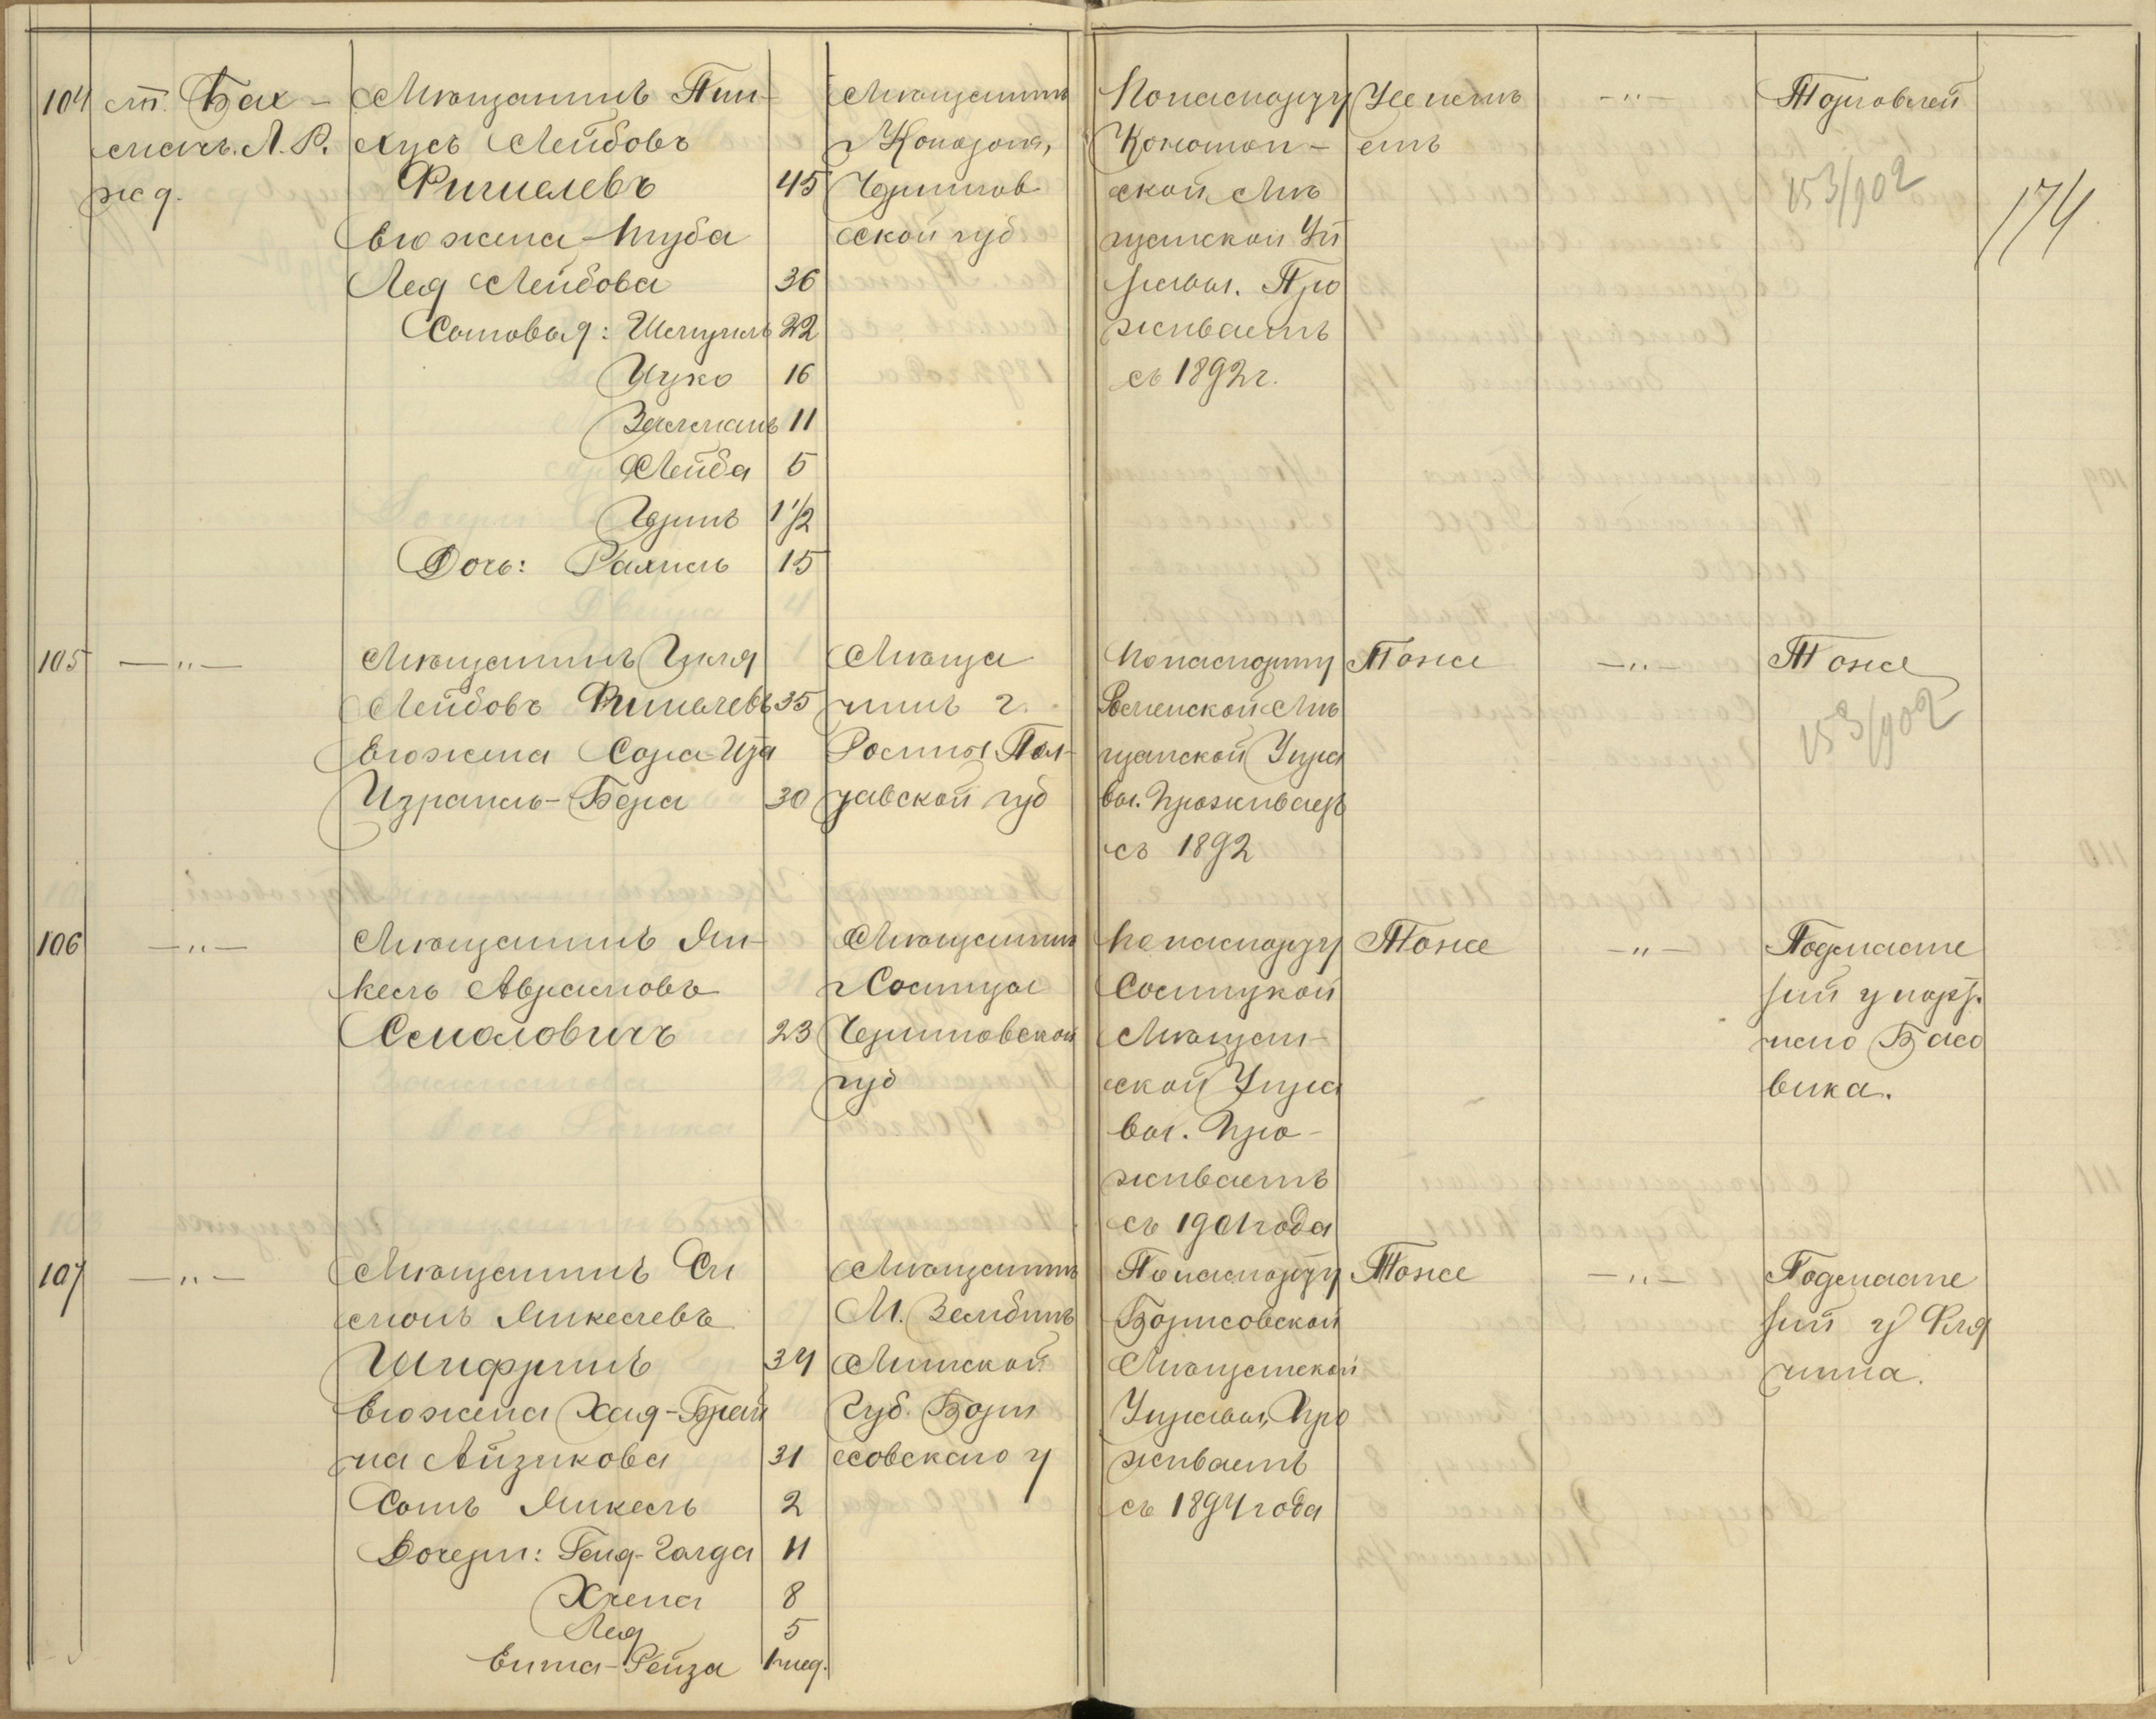 104
ст. Бах-
мачъ. Л. Р.
ж д.
Мѣщанинъ Пин-
хусъ Лейбовъ
Фишелевъ 45
его жена-Труба
Лея Лейбова 36
Сыновья: Шмуиль 22
Ицко 16
Залманъ 11
Лейба 5
Гершъ 1 1/2
Дочь: Рахиль 15
Мѣщанинъ
г Конотопа,
Чернигов
ской губ
По паспорту
Конотоп-
ской Мѣ
щанской Уп
равы. Про
живаетъ
съ 1892 г.
Не имѣ
етъ
—"—
Торговлей
153/902
174
105
—"—
Мѣщанинъ Гиля
Лейбовъ Фишелевъ 35
его жена Сора-Ида
Израиль-Бера 30
Мѣща
нинъ г.
Ромны Пол-
тавской губ
По паспорту
Роменской Мѣ
щанской Упра
вы. Проживаетъ
съ 1892
Тоже
—"—
Тоже
153/902
106
—"—
Мѣщанинъ Ян-
кель Абрамовъ
Смоловичъ 23
Мѣщанинъ
г Сосницы
Черниговской
губ
По паспорту
Сосницкой
Мѣщан-
ской Упра
вы. Про-
живаетъ
съ 1901 года
Тоже
—"—
Подмасте
рий у порт.
наго Басо
вика.
107
—"—
Мѣщанинъ Си
монъ Янкелевъ
Шифринъ 34
его жена Хая-Брай
на Айзикова 31
Сынъ Янкель 2
Дочери: Геня-Голда 11
Хлена 8
Лея 5
Ента-Рейза 1 нед.
Мѣщанинъ
М. Зембинъ
Минской
Губ. Бори
совскаго у
По паспорту
Борисовской
Мѣщанской
Управы, Про
живаетъ
съ 1894 года
Тоже
—"—
Подмасте
рий у Фля